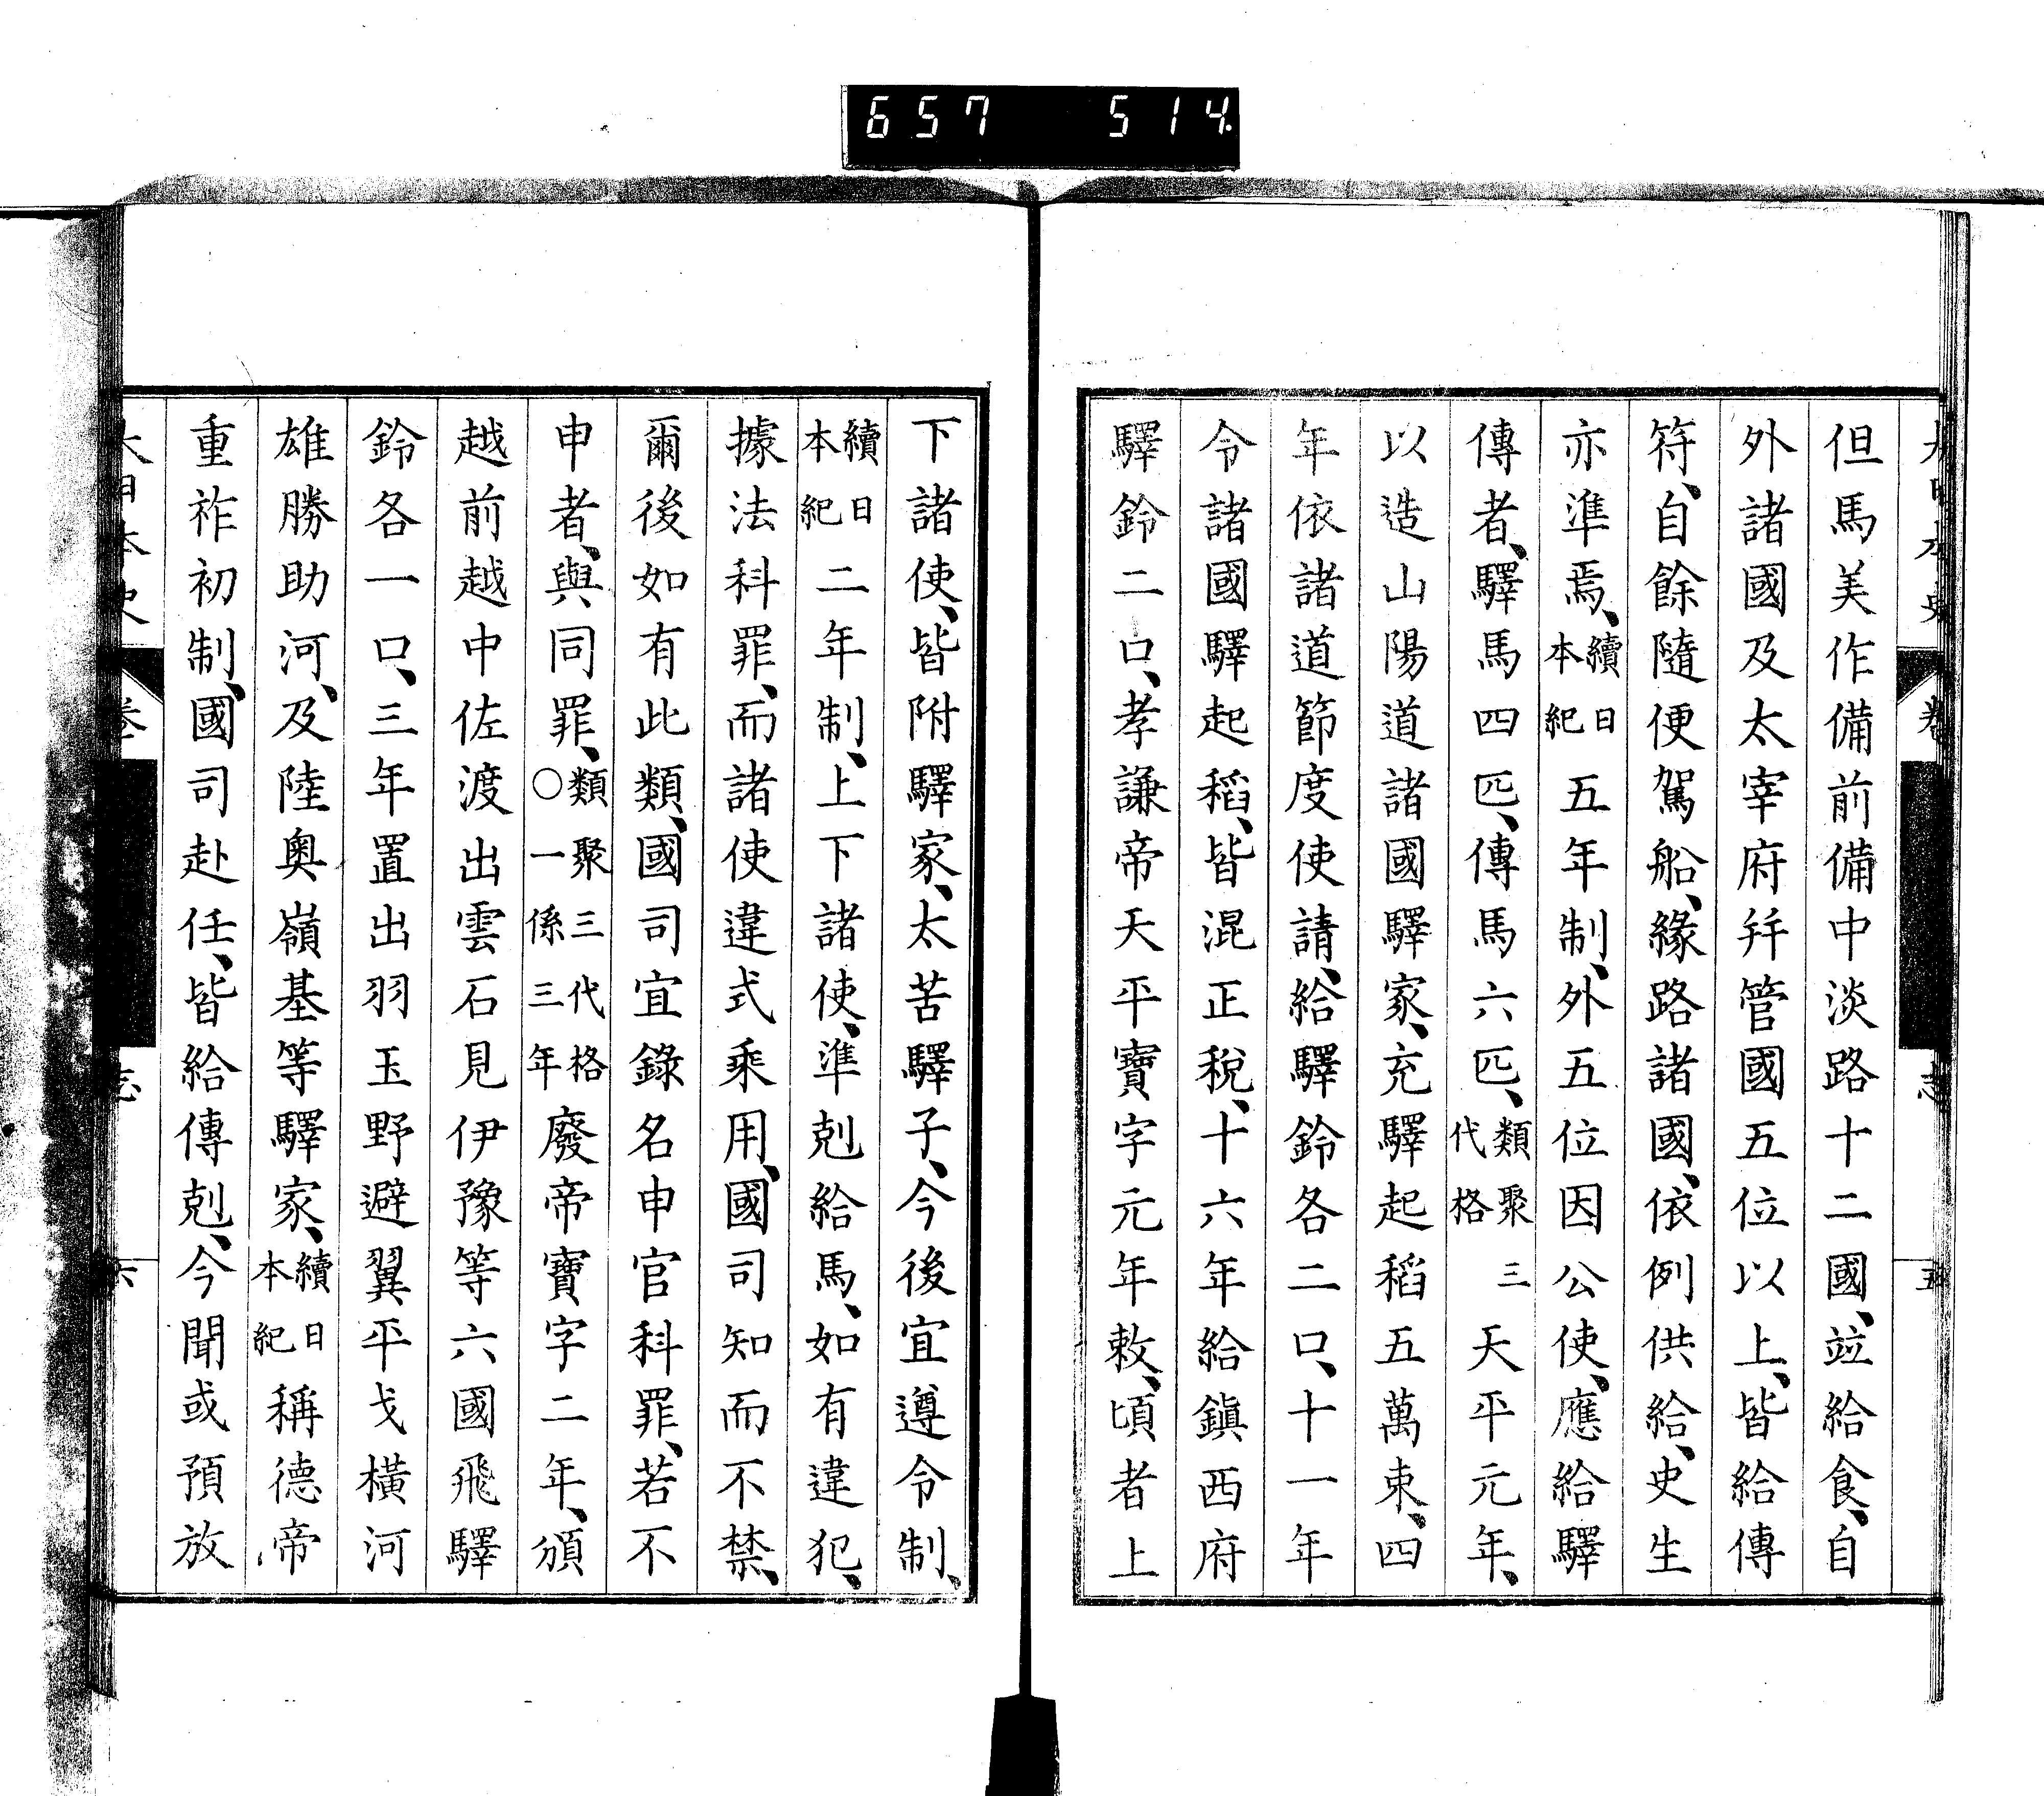 657 514
但馬美作備前備中淡路十二國、竝給食、自
外諸國及太宰府幷管國五位以上、皆給傳
符、自餘隨便駕船、緣路諸國、依例供給、史生
亦準焉、續日本紀五年制、外五位因公使、應給驛
傳者、驛馬四匹、傳馬六匹、類聚三代格天平元年、
以造山陽道諸國驛家、充驛起稻五萬束、四
年依諸道節度使請、給驛鈴各二口、十一年
令諸國驛起稻、皆混正稅、十六年給鎭西府
驛鈴二口、孝謙帝天平寶字元年敕、頃者上
下諸使、皆附驛家、太苦驛子、今後宜遵令制、
續日本紀二年制、上下諸使、準剋給馬、如有違犯、
據法科罪、而諸使違式乘用、國司知而不禁、
爾後如有此類、國司宜錄名申官科罪、若不
申者、與同罪、類聚三代格○一係三年廢帝寶字二年、頒
越前越中佐渡出雲石見伊豫等六國飛驛
鈴各一口、三年置出羽玉野避翼平戈橫河
雄勝助河、及陸奧嶺基等驛家、續日本紀稱德帝
重祚初制、國司赴任、皆給傳剋、今聞或預放
大日本史 卷 志 六